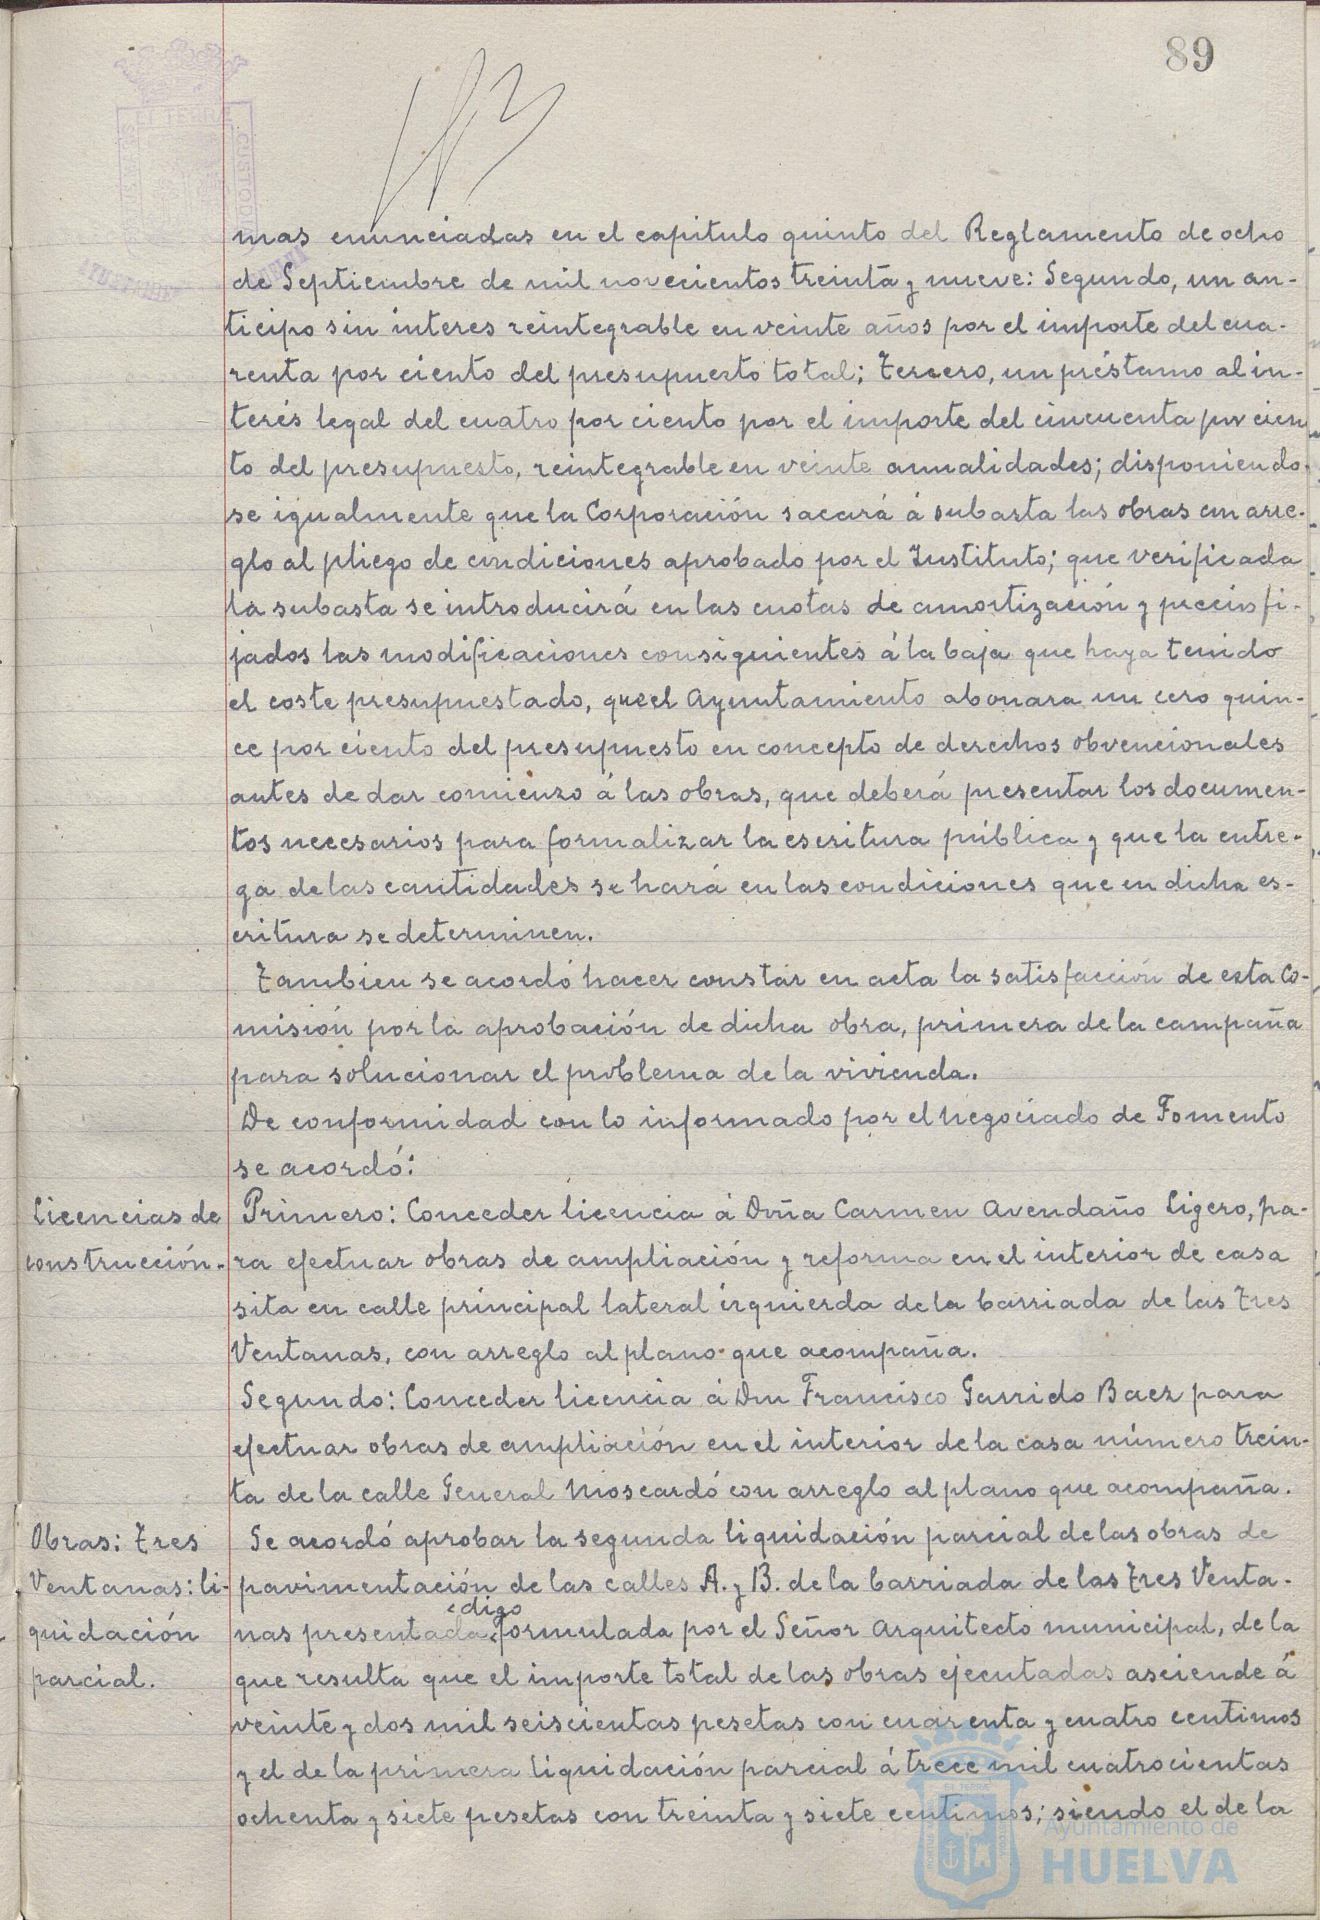 89
mas enunciadas en el capitulo quinto del Reglamento de ocho
de Septiembre de mil novecientos treinta y nueve: Segundo, un an-
ticipo sin interes reintegrable en veinte años por el importe del cua-
renta por ciento del presupuesto total; Tercero, un préstamo al in-
terés legal del cuatro por ciento por el importe del cincuenta por cien
to del presupuesto, reintegrable en veinte anualidades; disponiendo-
se igualmente que la Corporación sacará á subasta las obras con arre-
glo al pliego de condiciones aprobado por el Instituto; que verificada
la subasta se introducirá en las cuotas de amortización y precios fi-
jados las modificaciones consiguientes á la baja que haya tenido
el coste presupuestado, que el Ayuntamiento abonara un cero quin-
ce por ciento del presupuesto en concepto de derechos obvencionales
antes de dar comienzo á las obras, que deberá presentar los documen-
tos necesarios para formalizar la escritura pública y que la entre-
ga de las cantidades se hará en las condiciones que en dicha es-
critura se determinen.
Tambien se acordó hacer constar en acta la satisfacción de esta Co-
misión por la aprobación de dicha obra, primera de la campaña
para solucionar el problema de la vivienda.
De conformidad con lo informado por el negociado de Fomento
se acordó:
Licencias de
construcción.-
Primero: Conceder licencia á Doña Carmen Avendaño Ligero, pa-
ra efectuar obras de ampliación y reforma en el interior de casa
sita en calle principal lateral izquierda de la barriada de las Tres
Ventanas, con arreglo al plano que acompaña.
Segundo: Conceder licencia á Don Francisco Garrido Baez para
efectuar obras de ampliación en el interior de la casa número trein-
ta de la calle General Moscardó con arreglo al plano que acompaña.
Obras: Tres
Ventanas: li-
quidación
parcial.
Se acordó aprobar la segunda liquidación parcial de las obras de
pavimentación de las calles A. y B. de la barriada de las Tres Venta-
digo
nas presentada, formulada por el Señor Arquitecto municipal, de la
que resulta que el importe total de las obras ejecutadas asciende á
veinte y dos mil seiscientas pesetas con cuarenta y cuatro centimos
y el de la primera liquidación parcial á trece mil cuatrocientas
ochenta y siete pesetas con treinta y siete centimos; siendo el de la
Ayuntamiento de
HUELVA